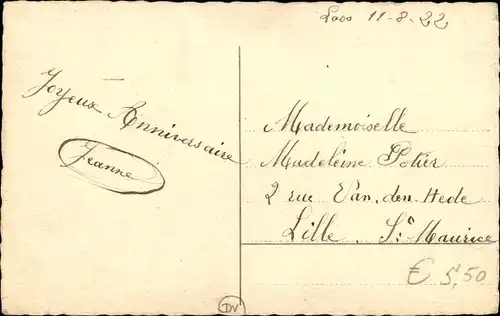 Loos 11-8-22
Joyeux Anniversaire
Jeanne
Mademoiselle
Madeleine Potier
2 rue Van den Hede
Lille. St Maurice
€ 5,50
DV